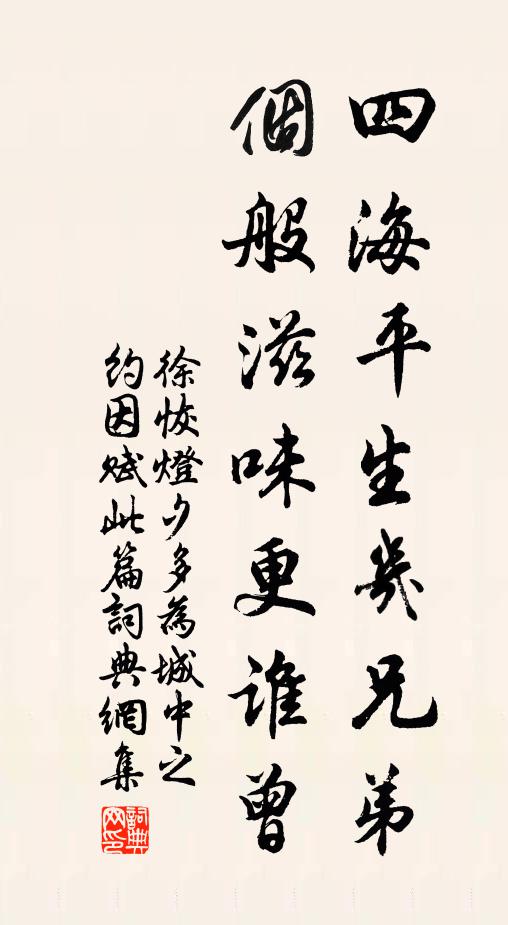 四海平生幾兄弟
個般滋味更誰曾
徐恢燈夕多為城中之
約因賦此篇詞典網集
詞典網印